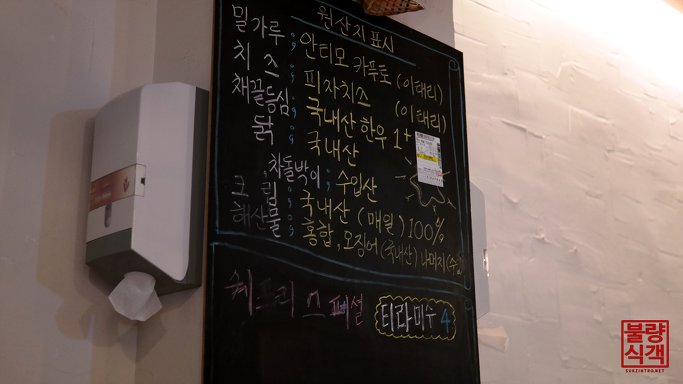 원산지 표시
밀가루 ; 안티모 카푸토 (이태리)
치즈 ; 피자치즈 (이태리)
채끝등심 ; 국내산 한우 1+
닭 ; 국내산
차돌박이 ; 수입산
크림 ; 국내산 (매일) 100%
해산물 ; 홍합, 오징어 (국내산) 나머지 (수입
쉐프의 스페셜
티라미수 4
불량
식객
SUKZINTRO.NET